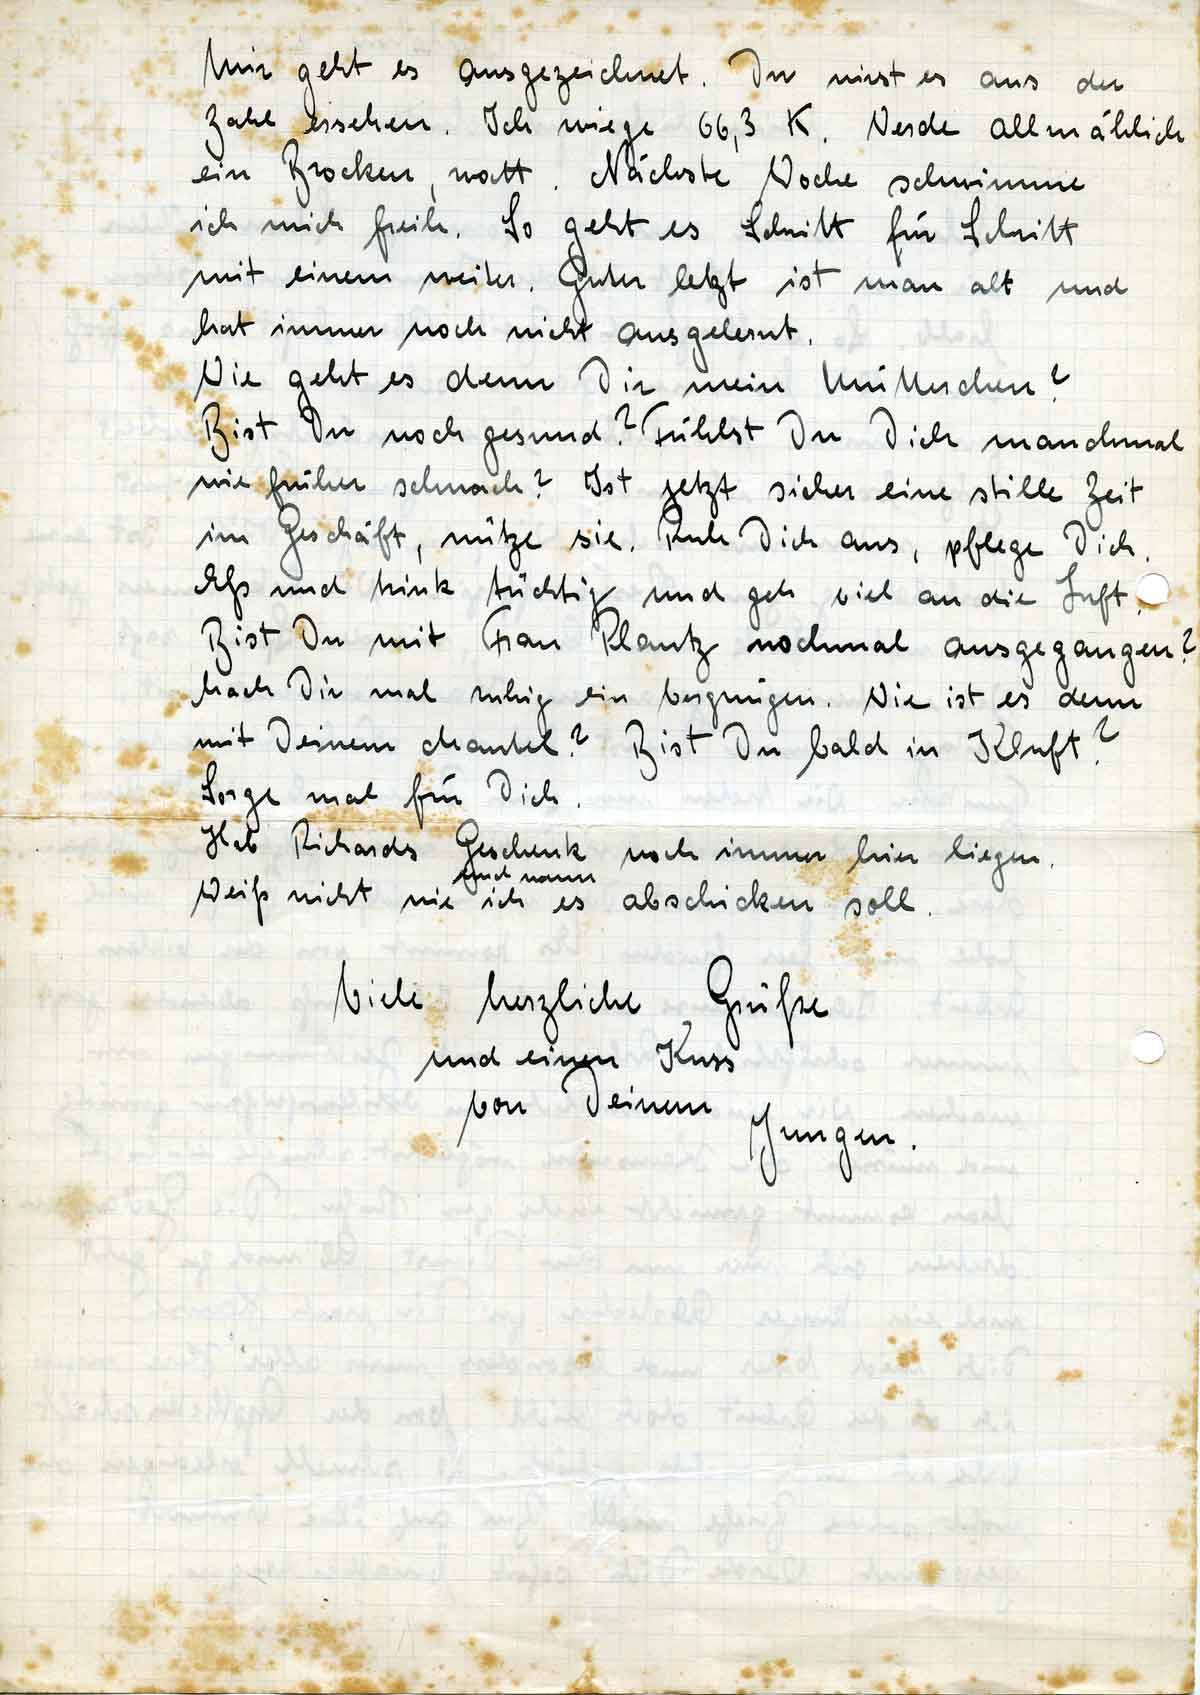 Mir geht es ausgezeichnet. Du wirst es aus der
Zahl ersehen. Ich wiege 66,3 K. Werde allmählich
ein Brocken, watt. Nächste Woche schwimme
ich mich frei. So geht es Schritt für Schritt
mit einem weiter. Guter letzt ist man alt und
hat immer noch nicht ausgelernt.
Wie geht es denn Dir mein Mütterchen?
Bist Du noch gesund? Fühlst Du Dich manchmal
wie früher schwach? Ist jetzt sicher eine stille Zeit
im Geschäft, nütze sie. Ruh Dich aus, pflege Dich.
Eß und trink tüchtig und geh viel an die Luft.
Bist Du mit Frau Plautz nochmal ausgegangen?
Mach Dir mal ruhig ein Vergnügen. Wie ist es denn
mit Deinem Mantel? Bist Du bald in Kluft?
Sorge mal für Dich.
Hab Richards Geschenk noch immer hier liegen.
Weiß nicht wie und wann ich es abschicken soll.
Viele herzliche Grüße
und einen Kuss
von Deinem
Jungen.